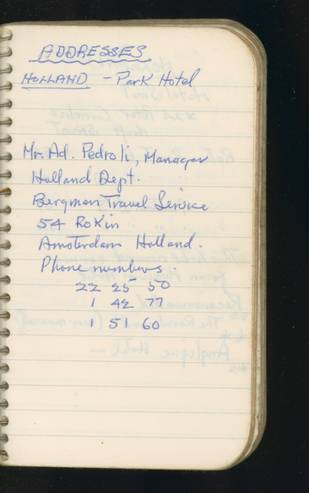 ADDRESSES
HOLLAND - Park Hotel
Mr. Ad. Pedroli, Manager
Holland Dept.
Bergman Travel Service
54 Rokin
Amsterdam Holland.
Phone numbers:
22 25 50
1 42 77
1 51 60